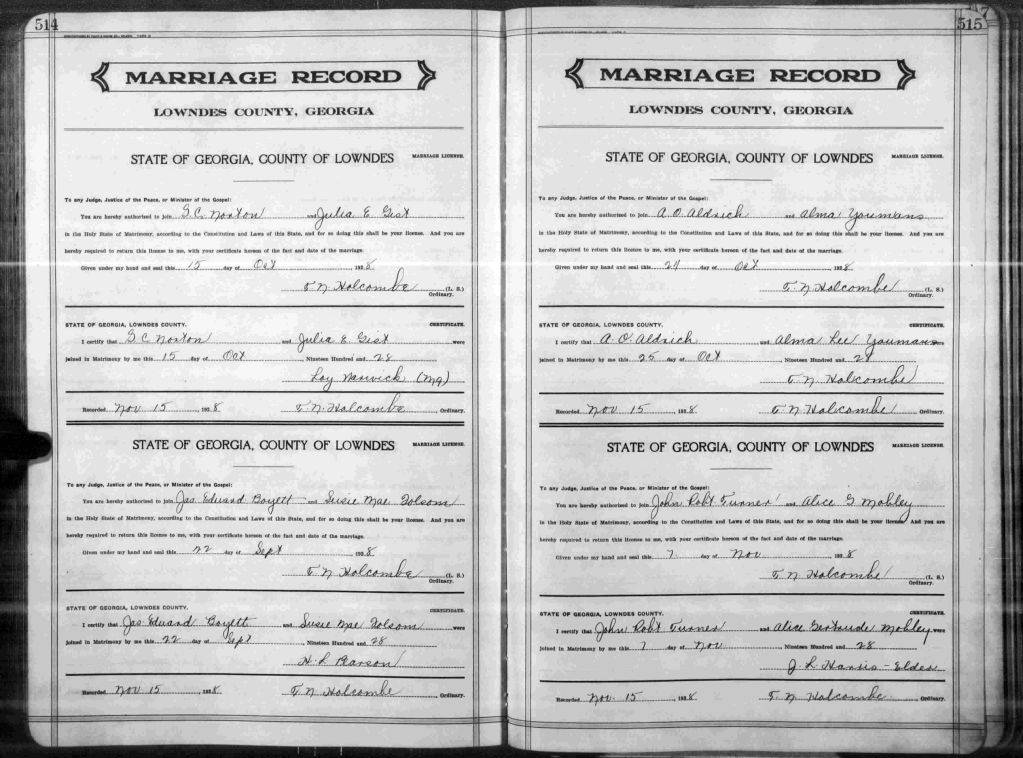 514
MARRIAGE RECORD
LOWNDES COUNTY, GEORGIA
STATE OF GEORGIA, COUNTY OF LOWNDES MARRIAGE LICENSE.
To any Judge, Justice of the Peace, or Minister of the Gospel:
You are hereby authorized to join G. C. Norton and Julia E Gist
in the Holy State of Matrimony, according to the Constitution and Laws of this State, and for so doing this shall be your license. And you are
hereby required to return this license to me, with your certificate hereon of the fact and date of the marriage.
Given under my hand and seal this 15 day of Oct, 1928
T. N. Holcombe (L. S.)
Ordinary.
STATE OF GEORGIA, LOWNDES COUNTY. CERTIFICATE.
I certify that G C Norton and Julia E. Gist were
joined in Matrimony by me this 15 day of Oct Nineteen Hundred and 28
Loy Warwick (Mg)
Recorded Nov 15, 1928 T. N. Holcombe Ordinary.
STATE OF GEORGIA, COUNTY OF LOWNDES MARRIAGE LICENSE.
To any Judge, Justice of the Peace, or Minister of the Gospel:
You are hereby authorized to join Jas Edward Boyett and Susie Mae Folsom
in the Holy State of Matrimony, according to the Constitution and Laws of this State, and for so doing this shall be your license. And you are
hereby required to return this license to me, with your certificate hereon of the fact and date of the marriage.
Given under my hand and seal this 22 day of Sept, 1928
T. N. Holcombe (L. S.)
Ordinary.
STATE OF GEORGIA, LOWNDES COUNTY. CERTIFICATE.
I certify that Jas Edward Boyett and Susie Mae Folsom were
joined in Matrimony by me this 22 day of Sept, Nineteen Hundred and 28
H. L Pearson
Recorded Nov 15, 1928 T. N. Holcombe Ordinary.
515
MARRIAGE RECORD
LOWNDES COUNTY, GEORGIA
STATE OF GEORGIA, COUNTY OF LOWNDES MARRIAGE LICENSE.
To any Judge, Justice of the Peace, or Minister of the Gospel:
You are hereby authorized to join A. O. Aldrich and Alma Youmans
in the Holy State of Matrimony, according to the Constitution and Laws of this State, and for so doing this shall be your license. And you are
hereby required to return this license to me, with your certificate hereon of the fact and date of the marriage.
Given under my hand and seal this day of Oct, 1928
T. N. Holcombe (L. S.)
Ordinary.
STATE OF GEORGIA, LOWNDES COUNTY. CERTIFICATE.
I certify that A. O. Aldrich and Alma Lee Youmans were
joined in Matrimony by me this 25 day of Oct, Nineteen Hundred and
T. N. Holcombe
Recorded Nov 15, 1928 T. N. Holcombe Ordinary.
STATE OF GEORGIA, COUNTY OF LOWNDES MARRIAGE LICENSE.
To any Judge, Justice of the Peace, or Minister of the Gospel:
You are hereby authorized to join John Robt Turner and Alice G Mobley
in the Holy State of Matrimony, according to the Constitution and Laws of this State, and for so doing this shall be your license. And you are
hereby required to return this license to me, with your certificate hereon of the fact and date of the marriage.
Given under my hand and seal this 7 day of Nov, 1928
T. N. Holcombe (L. S.)
Ordinary.
STATE OF GEORGIA, LOWNDES COUNTY. CERTIFICATE.
I certify that John Robt Turner and Alice Gertrude Mobley were
joined in Matrimony by me this 7 day of Nov, Nineteen Hundred and 28
J. L Harris - Elder
Recorded Nov 15, 1928 T. N. Holcombe Ordinary.